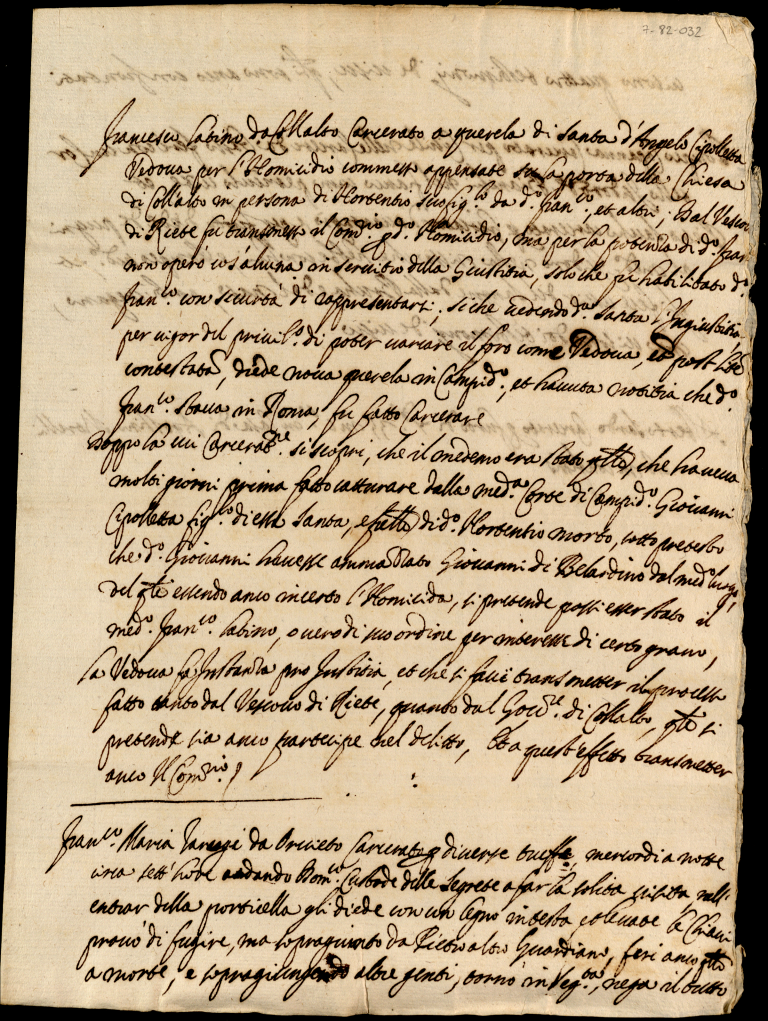 7-82-032
Francesco Latino da Collalto Carcerato a querela di Santa d'Angelo Cipolletta
Vedova per l'Homicidio commesso appensate su la porta della Chiesa
di Collalto in persona di Hortentio suo fig.lo da d.o Fran.co, et altri, Dal Vescovo
di Riete fu transmesso il Com.rio p d.o Homicidio, ma per la potenza di d.o Fran
non operò cos'alcuna in servitio della Giustitia, solo che fu habilitato d.o
Fran.co con sicurtà di rappresentarsi, si che vedendo d.a Santa l'Ingiustitia
per vigor del privil.o di poter variare il foro come Vedova, et post lite
contestata, diede nova querela in Campid.o, et havuta notitia che d.o
Fran.co stava in Roma, fu fatto Carcerare
Doppo la cui Carcerat.ne si scoprì, che il medemo era stato qllo, che haveva
molti giorni prima fatto catturare dalla med.a Corte di Campid.o Giovanni
Cipolletta fig.lo di essa Santa, e fratello di d.o Hortentio morto, sotto pretesto
che d.o Giovanni havesse ammazzato Giovanni di Belardino del med.o luogo,
del qle essendo anco incerto l'Homicida, si pretende possi esser stato il
med.o Fran.co Latino, o vero di suo ordine per interesse di certo grano,
La Vedova fa Instanza pro Justitia, et che si facci transmetter il processo
fatto tanto dal Vescovo di Riete, quanto dal Gov.re di Collalto, qle si
pretende sia anco partecipe nel delitto, et a quest'effetto transmetter
anco Il Com.rio
Fran.co Maria da Orvieto Carcerato p diverse truffe, mercordi a notte
circa sett'hore andando Dom.co Custode delle Segrete a far la solita visita nell'
entrar della porticella gli diede con un legno in testa e levate le Chiavi
provò di fugire, ma sopragiunto da Pietro altro Guardiano, ferì anco qllo
a morte, e sopragiungendo altre genti, tornò in Seg.ta, nega il tutto